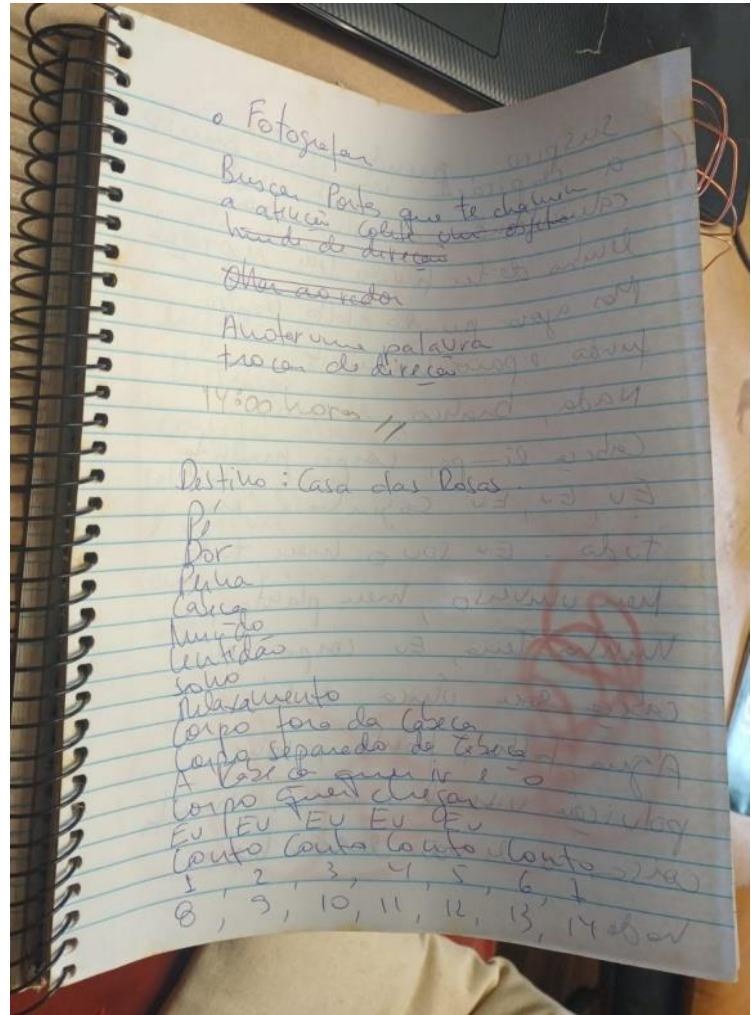 Fotografar
Buscar Pontos que te chamem
a atenção colete
mude de direção
Olhar ao redor
Anotar uma palavra
trocar de direção
14:00 horas //
Destino: Casa das Rosas.
Pé
Dor
Penha
Cabeça
Mundo
lentidão
sono
Relaxamento
Corpo fora da Cabeça
Corpo separado da Cabeça
A Cabeça quer ir e o
Corpo quer chegar
EU EU EU EU EU
Conto Conto Conto Conto
1, 2, 3, 4, 5, 6, 7
8, 9, 10, 11, 12, 13, 14